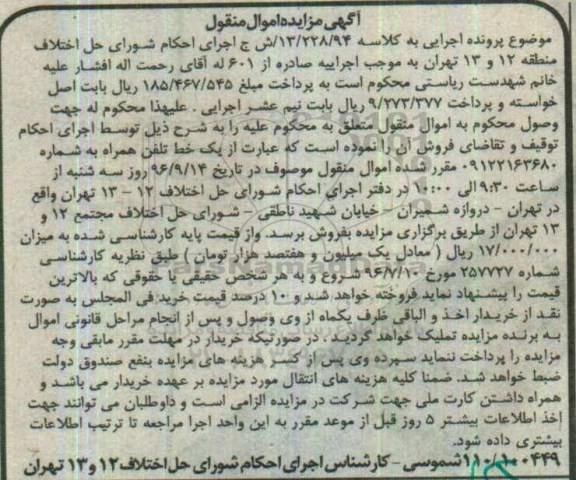 آگهی مزایده اموال منقول
موضوع پرونده اجرایی به کلاسه ۱۳/۲۲۸/۹۴/ش ج اجرای احکام شورای حل اختلاف
منطقه ۱۲ و ۱۳ تهران به موجب اجراییه صادره از ۶۰۱ له آقای رحمت اله افشار علیه
خانم شهدست ریاستی محکوم است به پرداخت مبلغ ۱۸۵/۴۶۷/۵۴۵ ریال بابت اصل
خواسته و پرداخت ۹/۲۷۳/۳۷۷ ریال بابت نیم عشر اجرایی . علیهذا محکوم له جهت
وصول محکوم به اموال منقول متعلق به محکوم علیه را به شرح ذیل توسط اجرای احکام
توقیف و تقاضای فروش آن را نموده است که عبارت از یک خط تلفن همراه به شماره
۰۹۱۲۲۱۶۳۶۸۰ مقرر شده اموال منقول موصوف در تاریخ ۹۶/۹/۱۴ روز سه شنبه از
ساعت ۹:۳۰ الی ۱۰:۰۰ در دفتر اجرای احکام شورای حل اختلاف ۱۲ - ۱۳ تهران واقع
در تهران - دروازه شمیران - خیابان شهید ناطقی - شورای حل اختلاف مجتمع ۱۲ و
۱۳ تهران از طریق برگزاری مزایده بفروش برسد. واز قیمت پایه کارشناسی شده به میزان
۱۷/۰۰۰/۰۰۰ ریال ( معادل یک میلیون و هفتصد هزار تومان ) طبق نظریه کارشناسی
شماره ۲۵۷۷۲۷ مورخ ۹۶/۷/۱۰ شروع و به هر شخص حقیقی یا حقوقی که بالاترین
قیمت را پیشنهاد نماید فروخته خواهد شد و ۱۰ درصد قیمت خرید فی المجلس به صورت
نقد از خریدار اخذ و الباقی ظرف یکماه از وی وصول و پس از انجام مراحل قانونی اموال
به برنده مزایده تملیک خواهد گردید . در صورتیکه خریدار در مهلت مقرر مابقی وجه
مزایده را پرداخت ننماید سپرده وی پس از کسر هزینه های مزایده بنفع صندوق دولت
ضبط خواهد شد. ضمنا کلیه هزینه های انتقال مورد مزایده بر عهده خریدار می باشد و
همراه داشتن کارت ملی جهت شرکت در مزایده الزامی است و داوطلبان می توانند جهت
اخذ اطلاعات بیشتر ۵ روز قبل از موعد مقرر به این واحد اجرا مراجعه تا ترتیب اطلاعات
بیشتری داده شود.
۱۱۰/۱۰۰۴۴۹ شموسی - کارشناس اجرای احکام شورای حل اختلاف ۱۲ و ۱۳ تهران